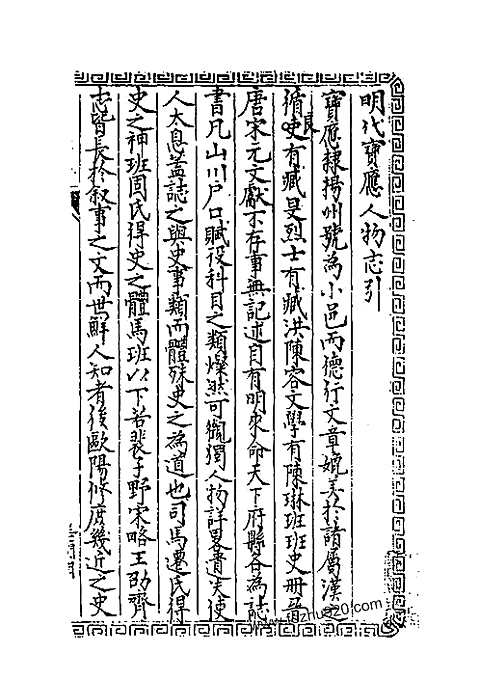 明代寶應人物志引
寶應隸揚州號為小邑而德行文章媲美於諸屬漢之
循吏有臧旻烈士有臧洪陳容文學有陳琳班班史冊晉
唐宋元文獻不存事無記述自有明來命天下府縣各為誌
書凡山川戶口賦役科目之類燦然可觀獨人物詳畧遺失使
人太息蓋誌之與史事類而體殊史之為道也司馬遷氏得
史之神班固氏得史之體馬班以下若裴子野宋略王劭齊
志皆長於叙事之文而世鮮人知者後歐陽修庶幾近之史